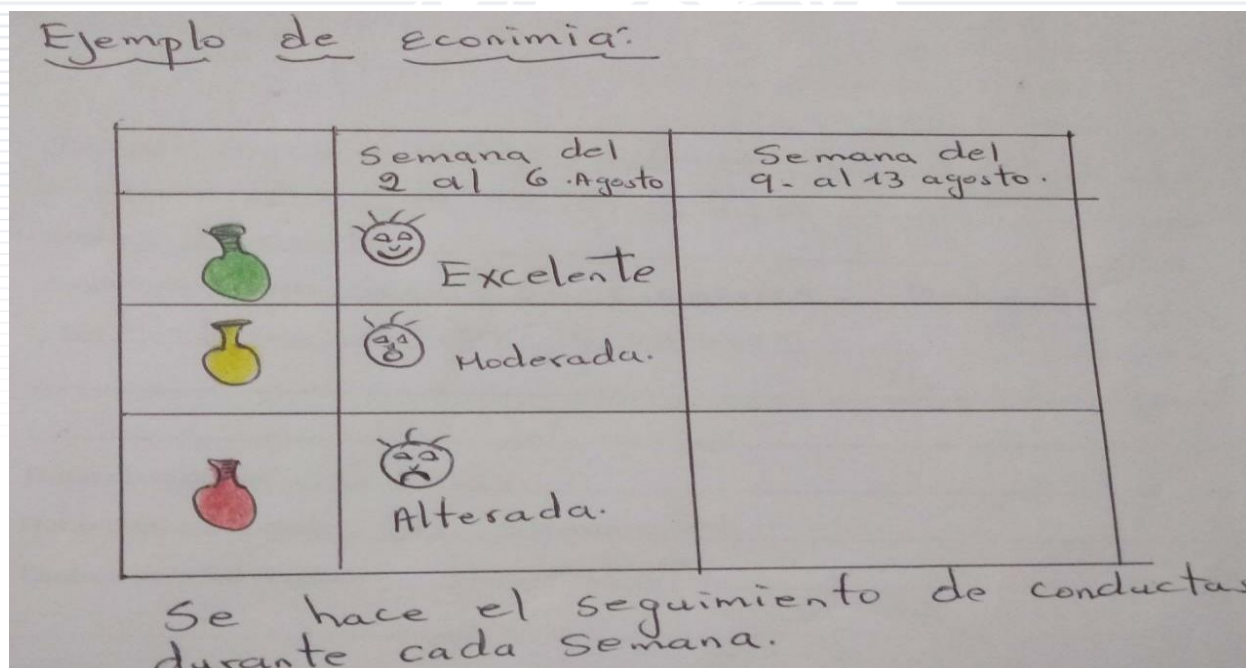 Ejemplo de Econimia:
Semana del
2 al 6 .Agosto
Semana del
9- al 13 agosto.
Excelente
Moderada.
Alterada.
Se hace el seguimiento de conductas
durante cada Semana.